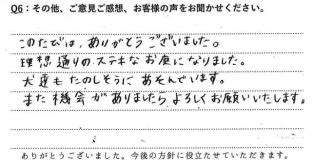 Q6：その他、ご意見ご感想、お客様の声をお聞かせください。
このたびは、ありがとうございました。
理想通りの、ステキなお庭になりました。
犬達もたのしそうにあそんでいます。
また機会がありましたらよろしくお願いいたします。
ありがとうございました。今後の方針に役立たせていただきます。